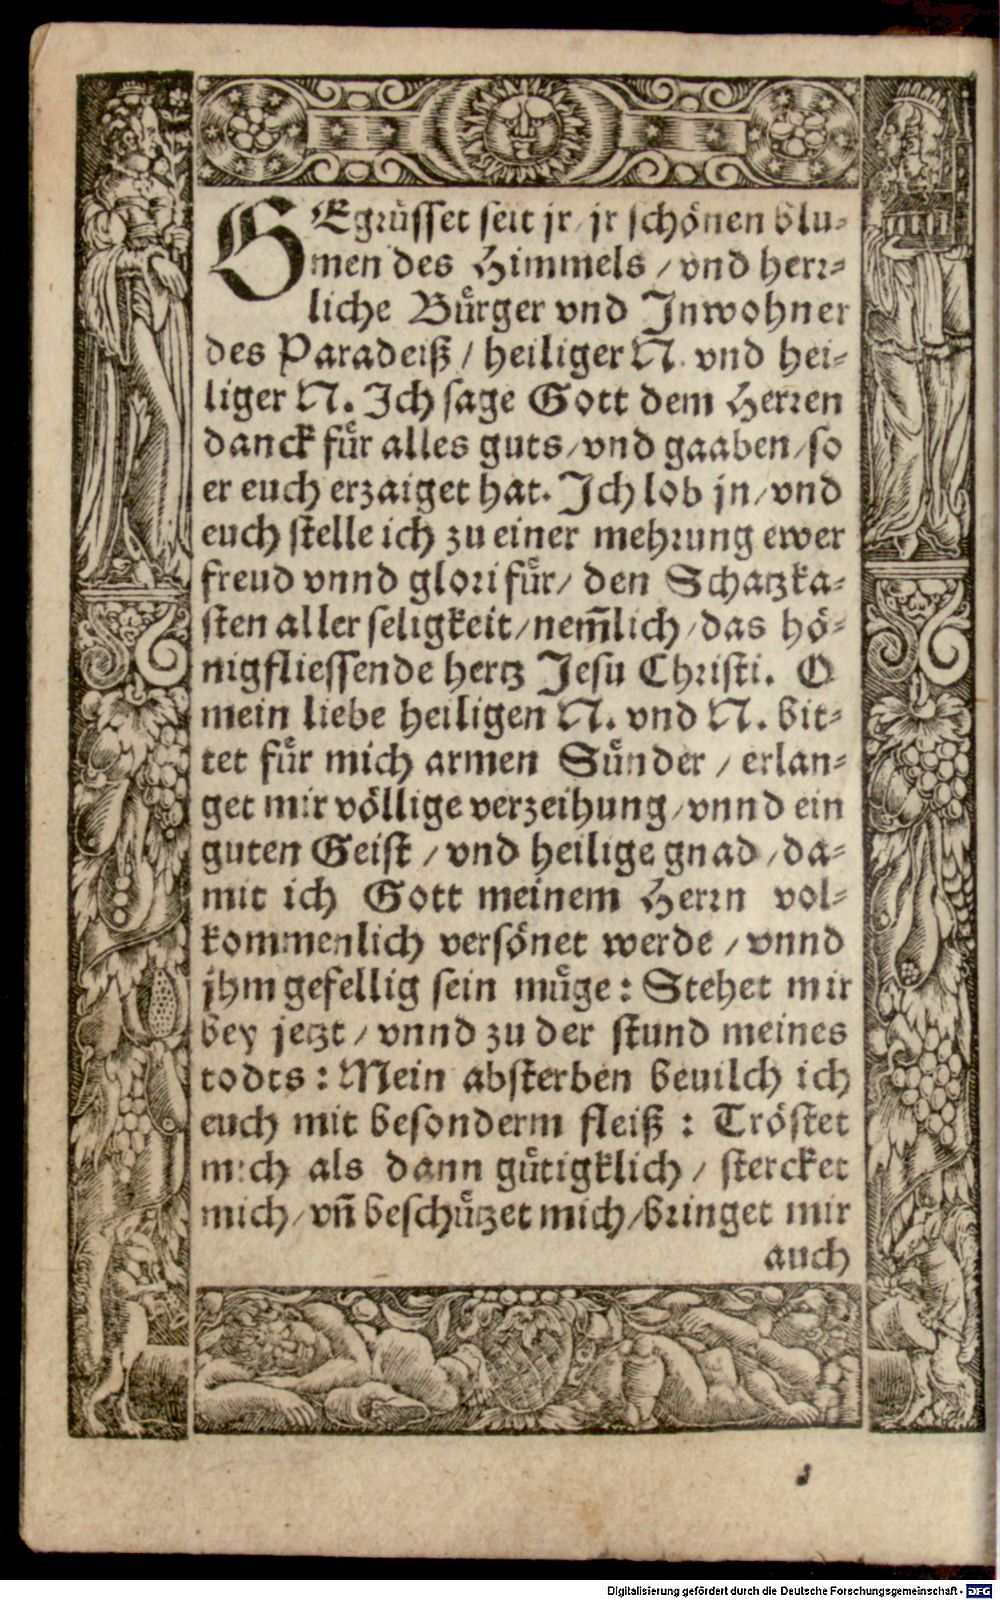 GEgrüsset seit jr/ jr schönen blu-
men des Himmels / vnd herr-
liche Bürger vnd Inwohner
des Paradeiß / heiliger N. vnd hei-
liger N. Ich sage Gott dem Herren
danck für alles guts/ vnd gaaben/ so
er euch erzaiget hat. Ich lob jn/ vnd
euch stelle ich zu einer mehrung ewer
freud vnnd glori für/ den Schatzka-
sten aller seligkeit/ nem̃lich/ das hö-
nigfliessende hertz Jesu Christi. O
mein liebe heiligen N. vnd N. bit-
tet für mich armen Sünder / erlan-
get mir völlige verzeihung/ vnnd ein
guten Geist / vnd heilige gnad / da-
mit ich Gott meinem Herrn vol-
kommenlich versönet werde / vnnd
jhm gefellig sein müge: Stehet mir
bey jetzt / vnnd zu der stund meines
todts: Mein absterben beuilch ich
euch mit besonderm fleiß: Tröstet
mich als dann gütigklich / stercket
mich/ vñ beschützet mich/ bringet mir
auch
Digitalisierung gefördert durch die Deutsche Forschungsgemeinschaft - DFG